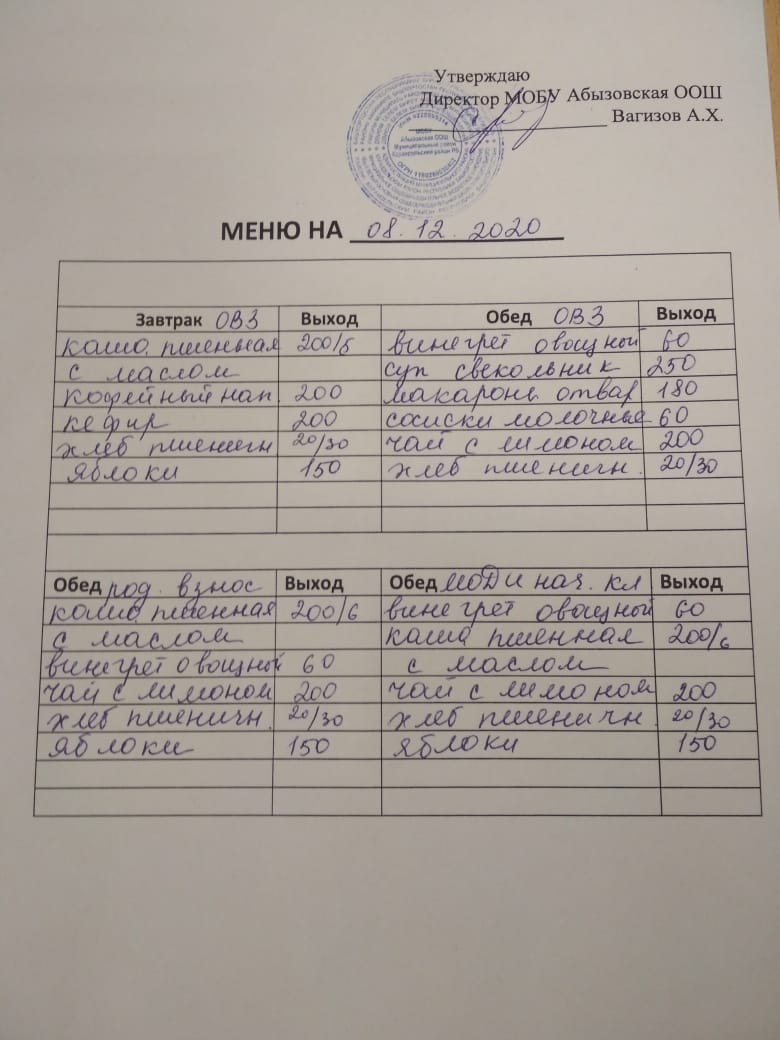 Утверждаю
Директор МОБУ Абызовская ООШ
Вагизов А.Х.
МОБУ
Абызовская ООШ
Муниципальный район
МЕНЮ НА 08.12.2020
Завтрак ОВЗ Выход Обед ОВЗ Выход
каша пшенная 200/5 винегрет овощной 60
с маслом суп свекольник 250
кофейный нап. 200 макароны отвар 180
кефир 200 сосиски молочные 60
хлеб пшеничн 20/30 чай с лимоном 200
яблоки 150 хлеб пшеничн. 20/30
Обед род. взнос Выход Обед МОДИ нач. кл Выход
каша пшенная 200/6 винегрет овощной 60
с маслом каша пшенная 200/6
винегрет овощной 60 с маслом
чай с лимоном 200 чай с лимоном 200
хлеб пшеничн. 20/30 хлеб пшеничн. 20/30
яблоки 150 яблоки 150